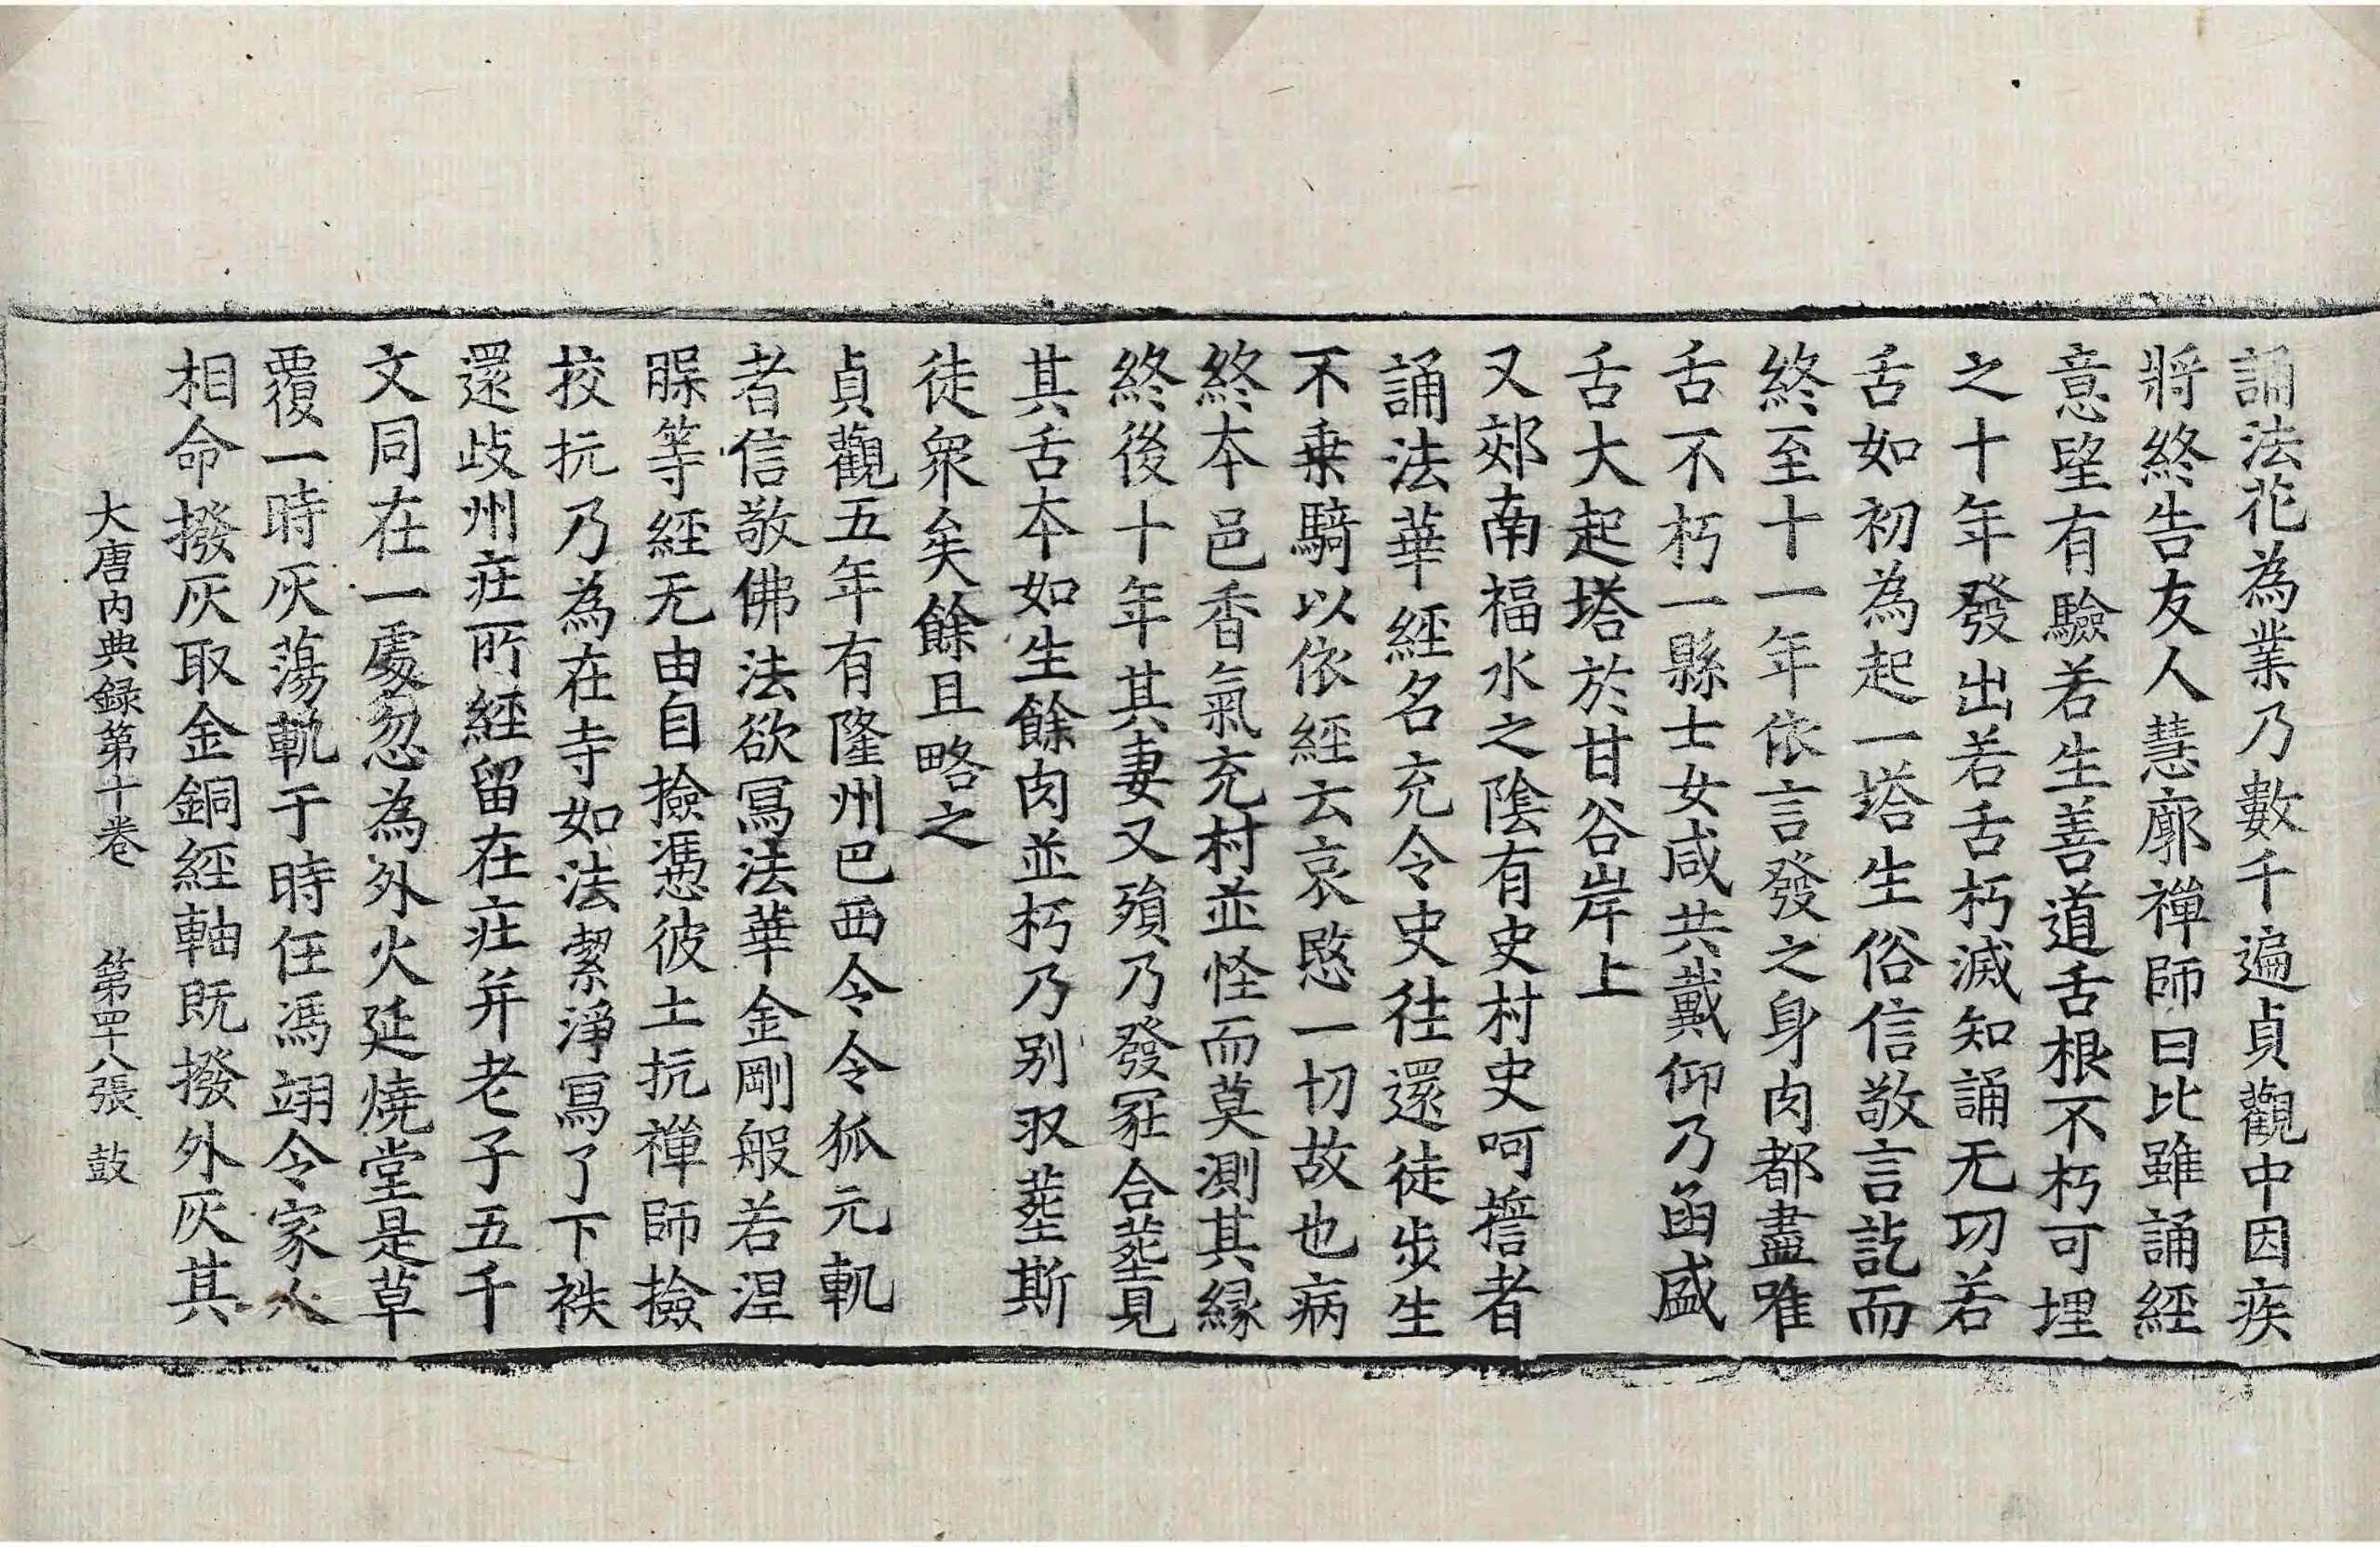 誦法花為業乃數千遍貞觀中因疾
將終告友人慧廓禪師曰比雖誦經
意望有驗若生善道舌根不朽可埋
之十年發出若舌朽滅知誦无功若
舌如初為起一塔生俗信敬言訖而
終至十一年依言發之身肉都盡唯
舌不朽一縣士女咸共戴仰乃函盛
舌大起塔於甘谷岸上
又郊南福水之陰有史村史呵擔者
誦法華經名充令史往還徒步生
不乗騎以依經云哀愍一切故也病
終夲邑香氣充村並怪而莫測其縁
終後十年其妻又殞乃發冢合塟見
其舌夲如生餘肉並朽乃别収塟斯
徒衆矣餘且略之
貞觀五年有隆州巴西令令狐元軌
者信敬佛法欲冩法華金剛般若涅
槃等經无由自撿憑彼土抗禪師撿
挍抗乃為在寺如法潔淨冩了下袟
還歧州庄所經留在庄并老子五千
文同在一處忽為外火延燒堂是草
覆一時灰蕩軌于時任馮翊令家人
相命撥灰取金銅經軸既撥外灰其
大唐内典録第十卷 第四十八張 鼓